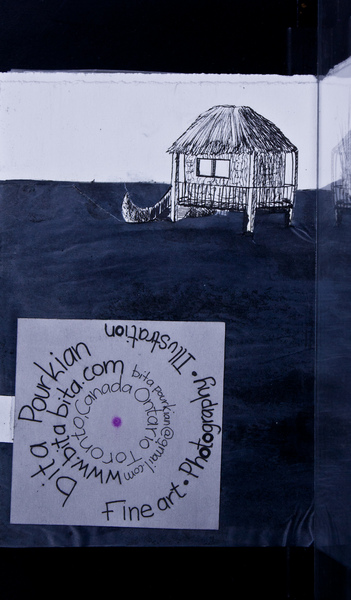 Bita Pourkian
Fine art • Photography • Illustration
www.bitabita.com
Toronto, Canada Ontario
bitapourkian@gmail.com